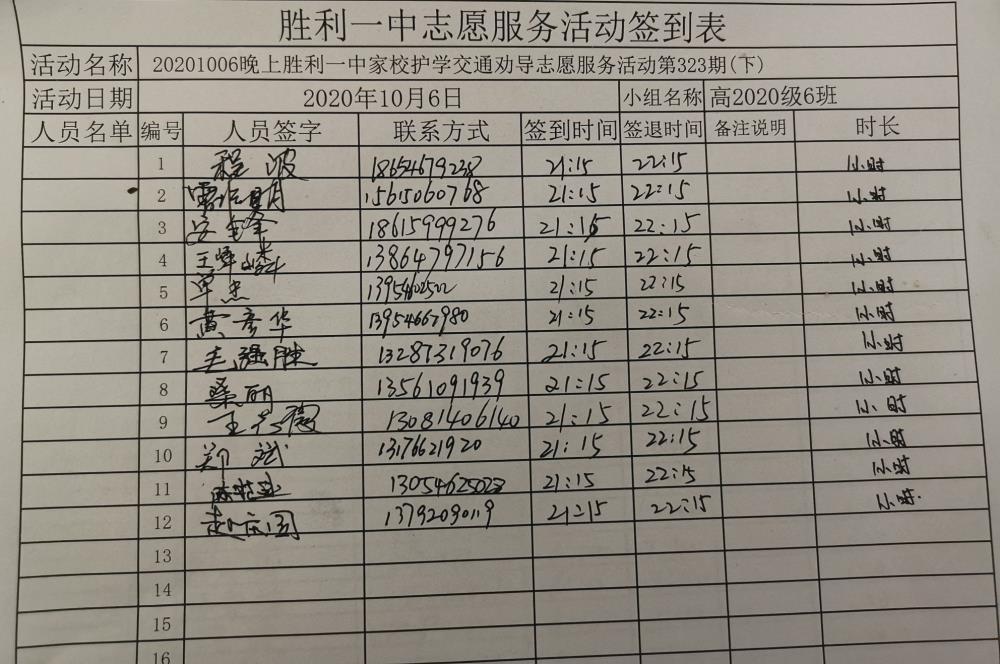 胜利一中志愿服务活动签到表
活动名称 20201006晚上胜利一中家校护学交通劝导志愿服务活动第323期(下)
活动日期 2020年10月6日 小组名称 高2020级6班
人员名单 编号 人员签字 联系方式 签到时间 签退时间 备注说明 时长
1 程波 18654679238 21:15 22:15 1小时
2 15615060768 21:15 22:15 1小时
3 安全金 18615999276 21:15 22:15 1小时
4 王峰嶙 13864797156 21:15 22:15 1小时
5 单杰 21:15 22:15 1小时
6 黄彦华 13954667980 21:15 22:15 1小时
7 毛强胜 13287319076 21:15 22:15 1小时
8 桑丽 13561091939 21:15 22:15 1小时
9 王 13081406140 21:15 22:15 1小时
10 郑斌 13176621920 21:15 22:15 1小时
11 13054625028 21:15 22:15 1小时
12 赵庆国 13792090119 21:15 22:15 1小时
13
14
15
16